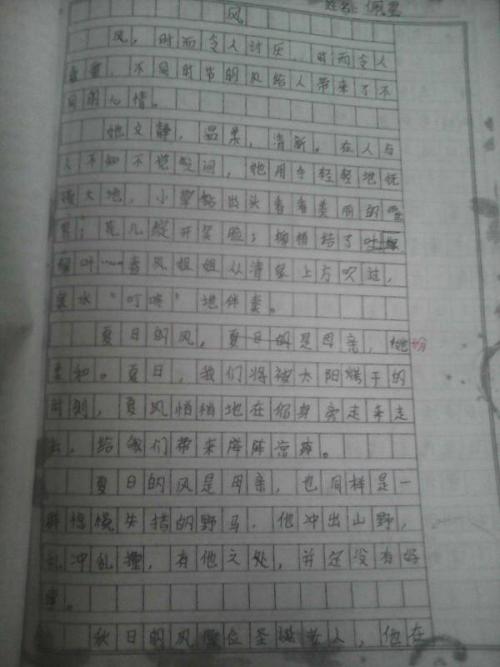 姓名：佩雯
风
风，时而令人讨厌，时而令人
喜爱，不同时节的风给人带来了不
同的心情。
她文静，温柔，清新。在人与
人不知不觉之间，她用手轻轻地抚
摸大地，小草钻出头看看美丽的
；花儿绽开笑脸；柳树结了吐
叶……春风姐姐从清泉上方吹过，
泉水“叮咚”地伴奏。
夏日的风，夏日的是母亲，她
柔和。夏日，我们将被太阳烤干的
时刻，夏风悄悄地在你身旁走来走
去，给我们带来阵阵凉爽。
夏日的风是母亲，也同样是一
群惊慌失措的野马，他冲出山野，
乱冲乱撞，有他之处，并定没有好
。
秋日的风像位圣诞老人，他在